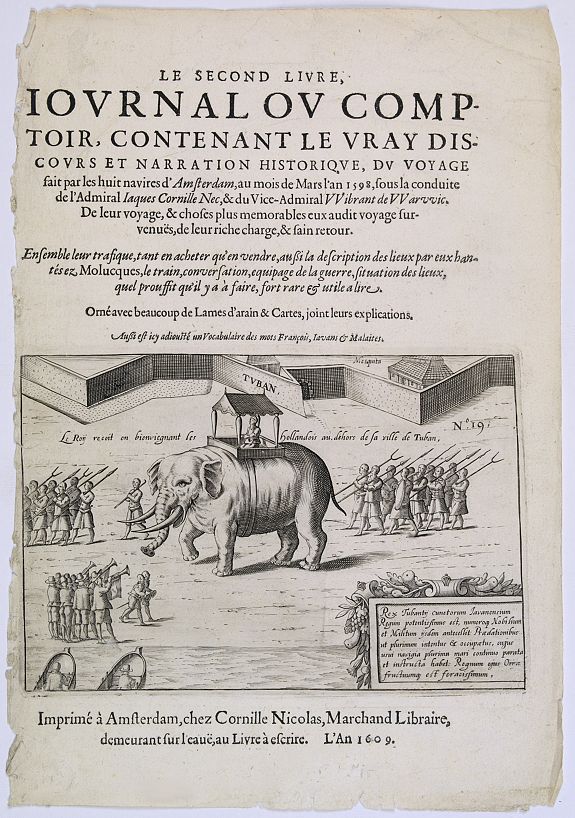 LE SECOND LIVRE,
IOVRNAL OV COMP-
TOIR, CONTENANT LE VRAY DIS-
COVRS ET NARRATION HISTORIQVE, DV VOYAGE
fait par les huit navires d'Amſterdam, au mois de Mars l'an 1598, ſous la conduite
de l'Admiral Iaques Cornille Nec, & du Vice-Admiral VVibrant de VVarvvic.
De leur voyage, & choſes plus memorables eux audit voyage ſur-
venuës, de leur riche charge, & ſain retour.
Enſemble leur trafique, tant en acheter qu'en vendre, auſſi la deſcription des lieux par eux han-
tés ez Molucques, le train, converſation, equipage de la guerre, ſituation des lieux,
quel prouffit qu'il y a à faire, fort rare & utile a lire.
Orné avec beaucoup de Lames d'arain & Cartes, joint leurs explications.
Auſſi eſt icy adiouſté un Vocabulaire des mots François, Iavans & Malaites.
Mosquita
TVBAN
No. 19.
Le Roÿ recoit en bienviegnant les Hollandois au dehors de ſa ville de Tuban,
Rex Tubanÿ cunctorum Iavanenſium
Regum potentiſſimus eſt, numeroq Nobilium
et Militum eosdem antecellit Prædationibus
ut plurimum intentus & occupatus, cujus
usui navigia plurima mari continuo parata
et inſtructa habet: Regnum ejus Orizæ
fructuumq eſt feraciſſimum,
Imprimé à Amſterdam, chez Cornille Nicolas, Marchand Libraire,
demeurant ſur l'eauë, au Livre à eſcrire. L'An 1609.